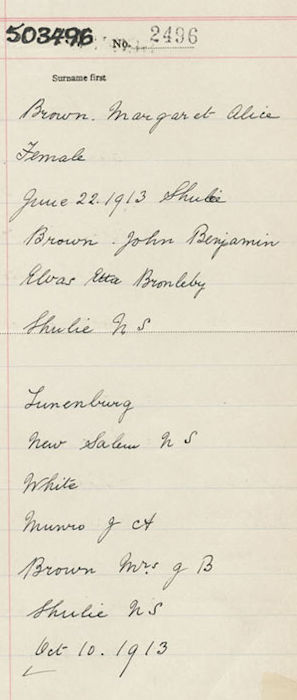 503496 No. 2496
Surname first
Brown. Margaret Alice
Female
June 22. 1913 Shulie
Brown. John Benjamin
Elvas Etta Bromleby
Shulie N S
Lunenburg
New Salem N S
White
Munro J A
Brown Mrs J B
Shulie N S
Oct 10. 1913